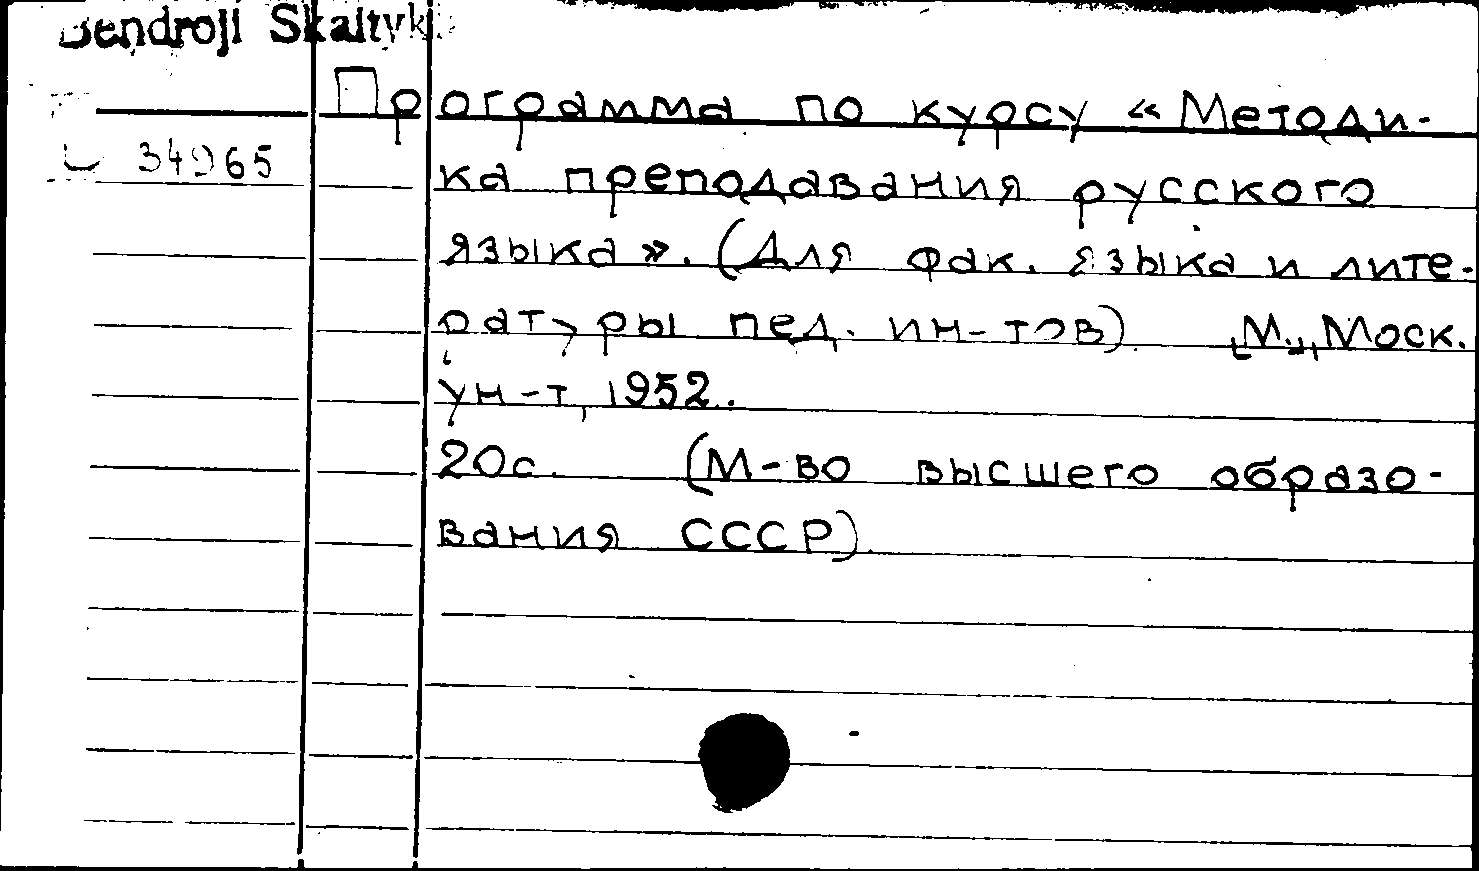 Bendroji Skaityk
Программа по курсу «Методи-
34965
ка преподавания русского
языка». (Для фак. языка и лите-
ратуры пед. ин-тов) [М.], Моск.
ун-т, 1952.
20с. (М-во высшего образо-
вания СССР).